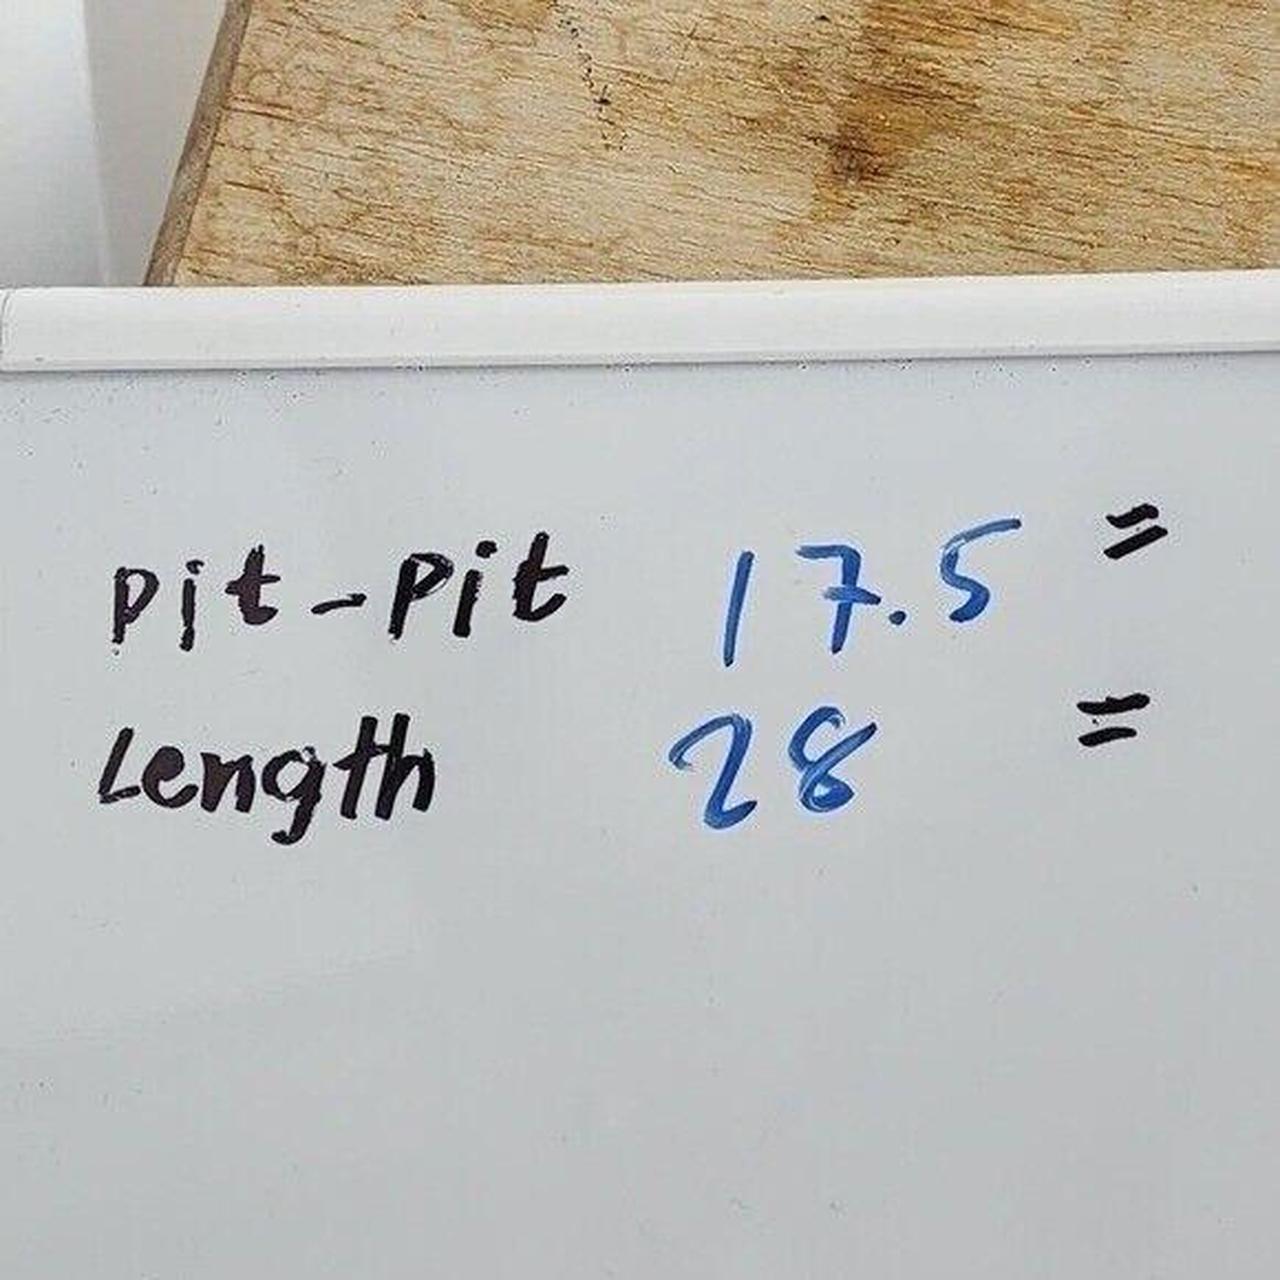 Pit-Pit 17.5 "
Length 28 "